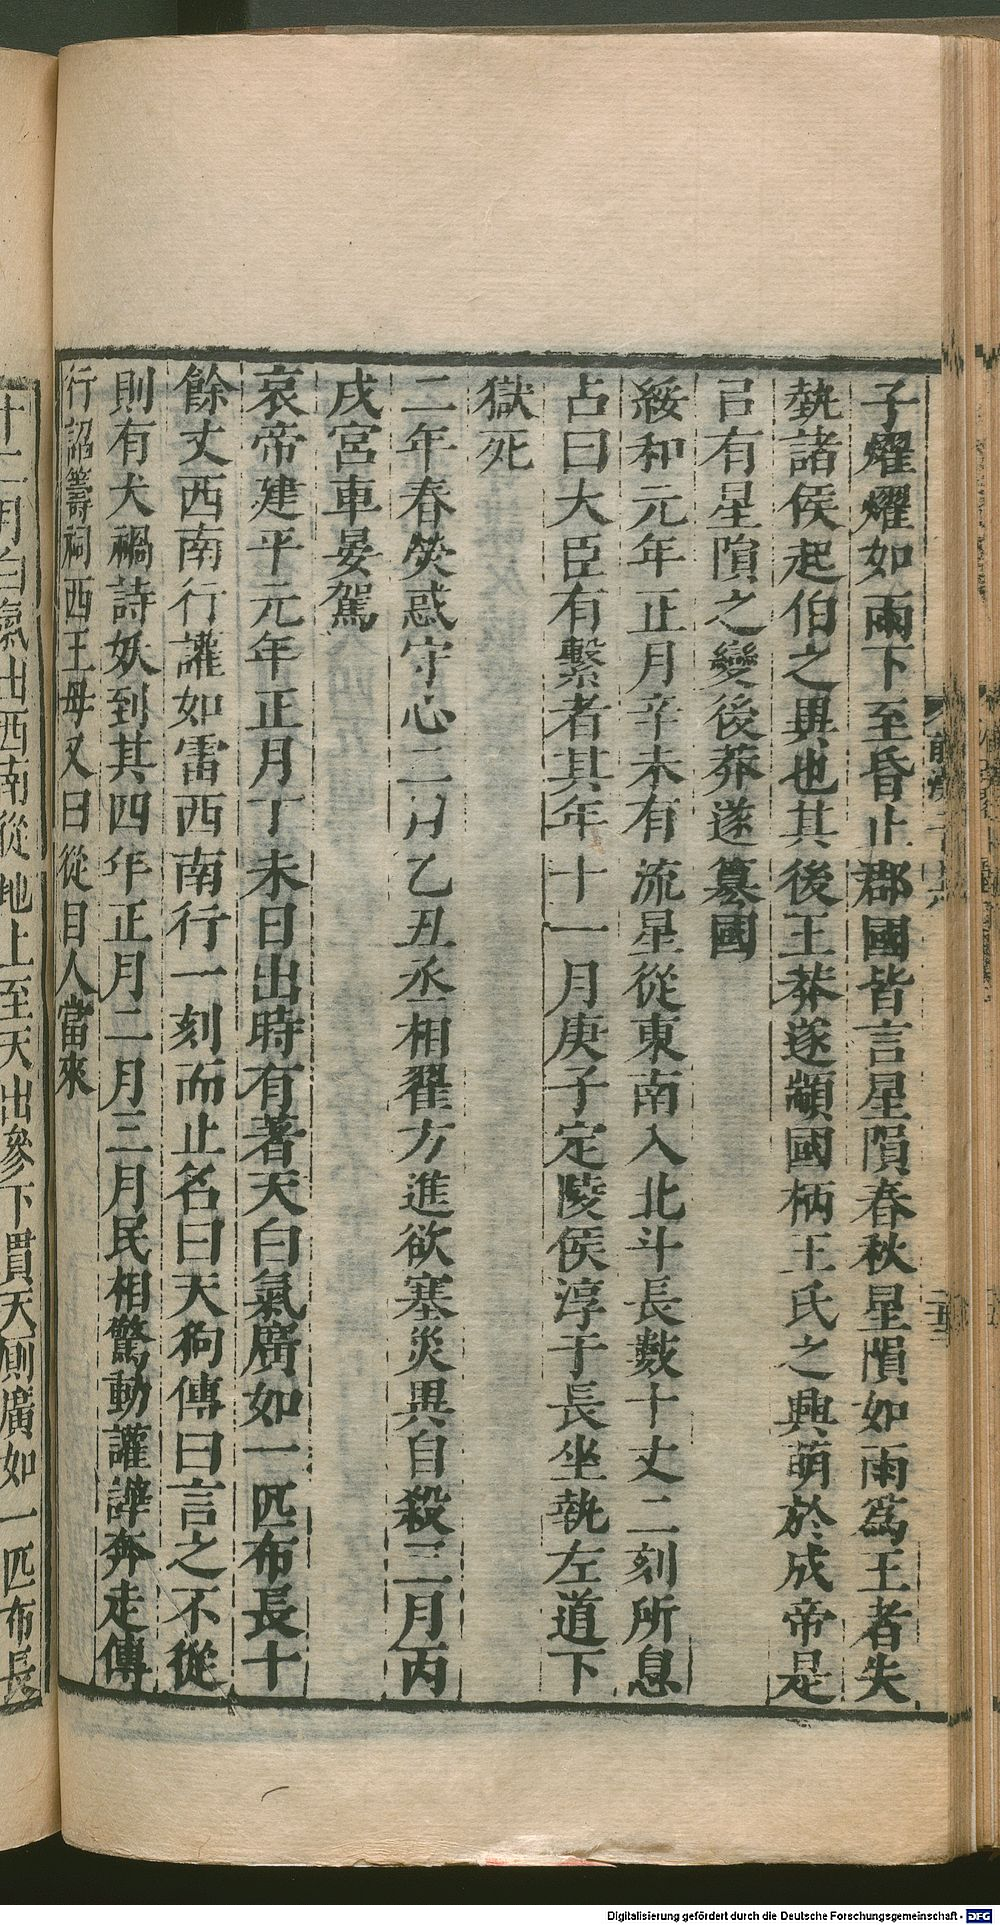 子燿燿如雨下至昏止郡國皆言星隕春秋星隕如雨爲王者失
埶諸侯起伯之異也其後王莽遂顓國柄王氏之興萌於成帝是
㠯有星隕之變後莽遂篡國
綏和元年正月辛未有流星從東南入北斗長數十丈二刻所息
占曰大臣有繫者其年十一月庚子定陵侯淳于長坐執左道下
獄死
二年春熒惑守心二月乙丑丞相翟方進欲塞災異自殺三月丙
戌宮車晏駕
哀帝建平元年正月丁未日出時有著天白氣廣如一匹布長十
餘丈西南行讙如雷西南行一刻而止名曰天狗傳曰言之不從
則有犬禍詩妖到其四年正月二月三月民相驚動讙譁奔走傳
行詔籌祠西王母又曰從目人當來
十二月白氣出西南從地上至天出參下貫天廁廣如一匹布長
Digitalisierung gefördert durch die Deutsche Forschungsgemeinschaft - DFG